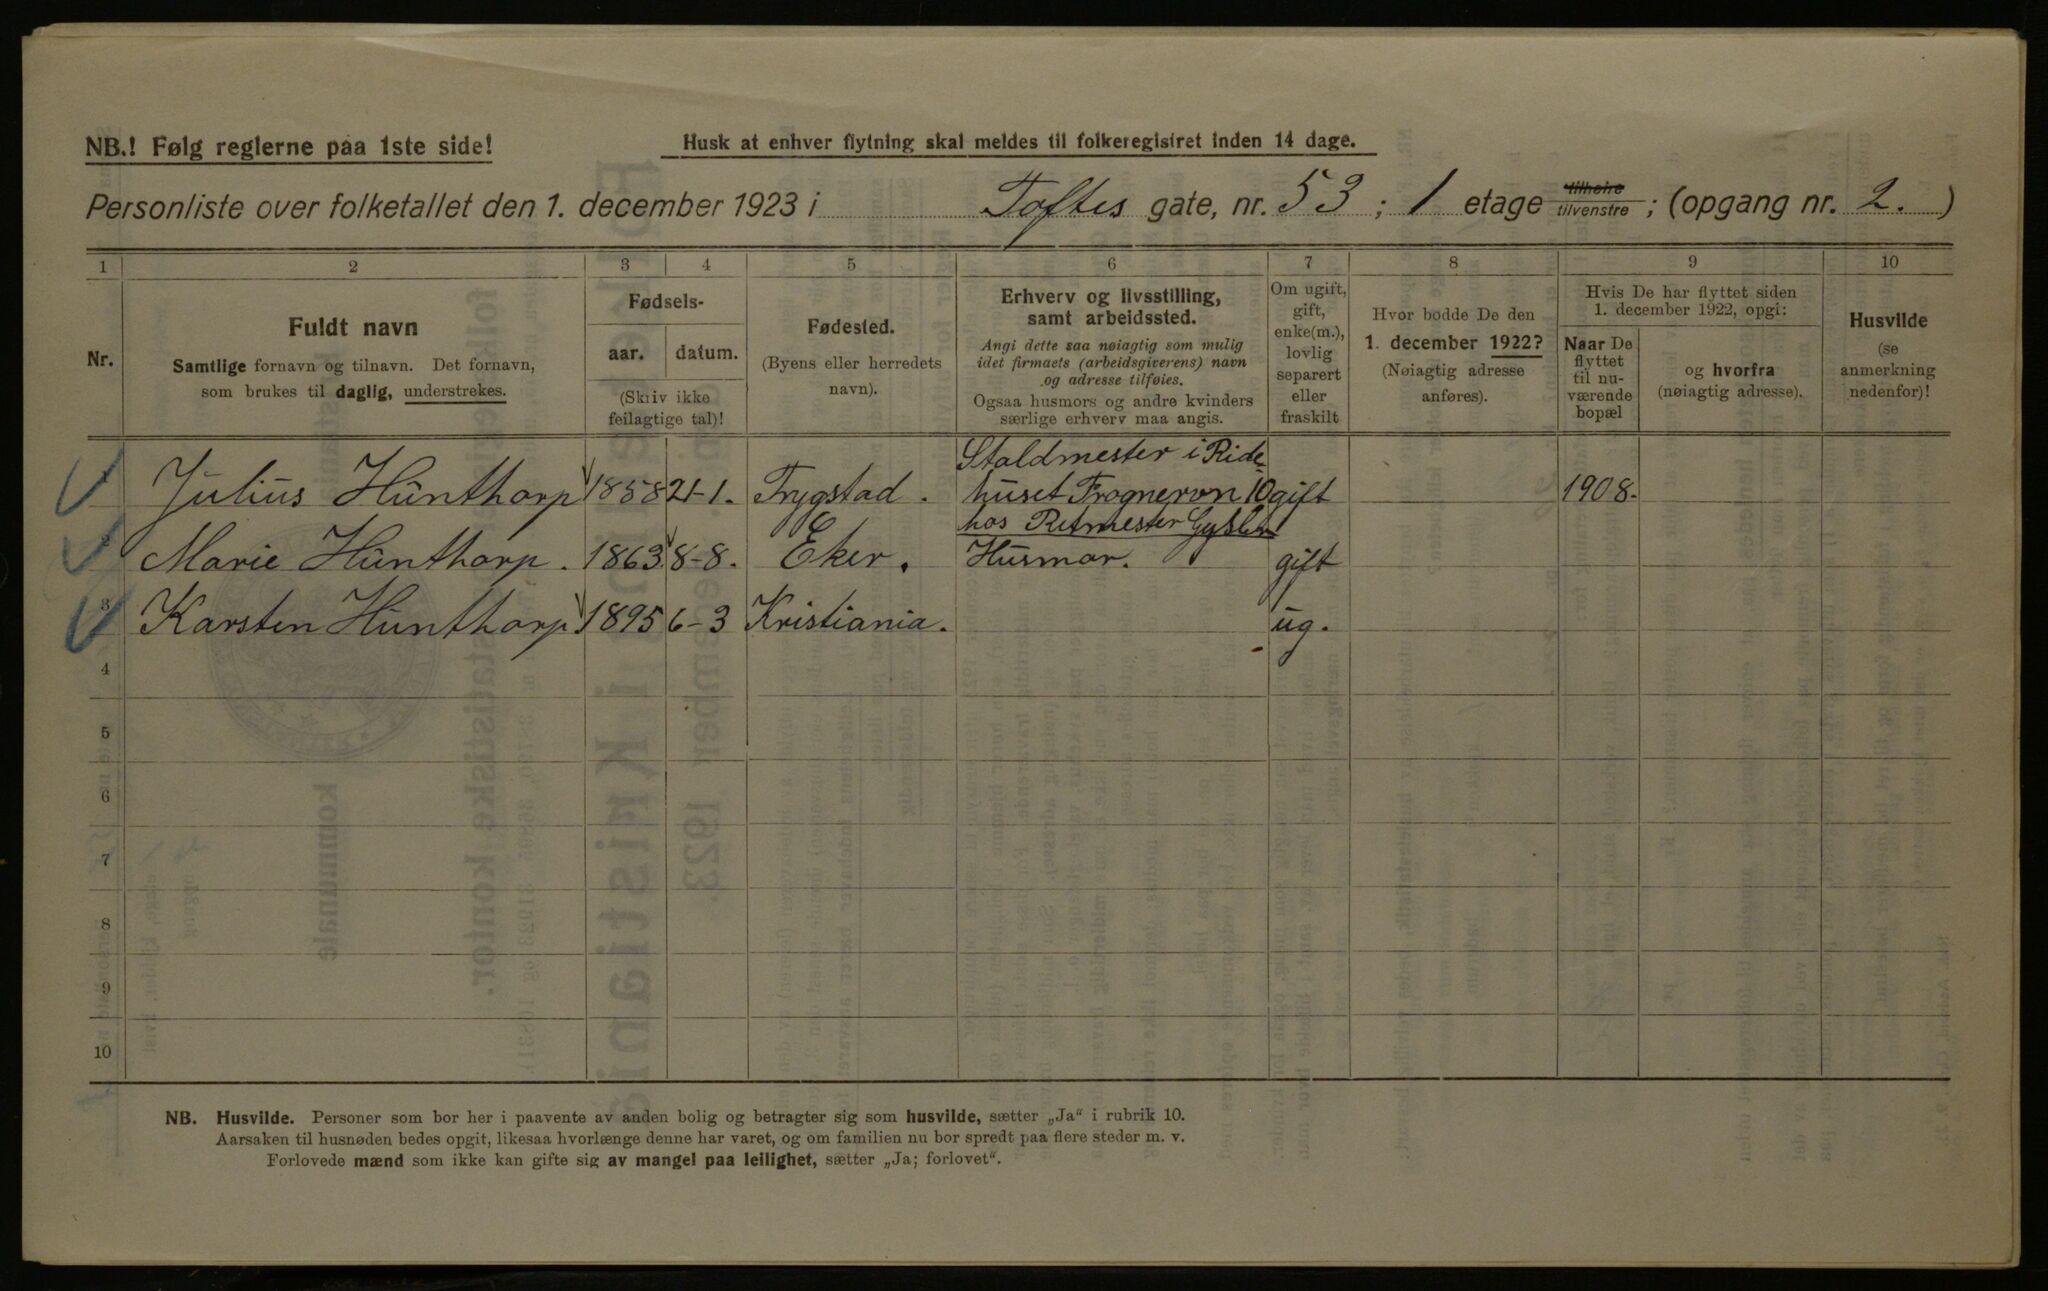 NB.! Følg reglerne paa 1ste side!
Husk at enhver flytning skal meldes til folkeregistret inden 14 dage.
Personliste over folketallet den 1. december 1923 i Toftes gate, nr. 53 ; 1 etage tilhøire tilvenstre ; (opgang nr. 2. )
1 2 3 4 5 6 7 8 9 10
Nr.
Fuldt navn
Samtlige fornavn og tilnavn. Det fornavn,
som brukes til daglig, understrekes.
Fødsels-
aar. datum.
(Skriv ikke
feilagtige tal)!
Fødested.
(Byens eller herredets
navn).
Erhverv og livsstilling,
samt arbeidssted.
Angi dette saa nøiagtig som mulig
idet firmaets (arbeidsgiverens) navn
og adresse tilføies.
Ogsaa husmors og andre kvinders
særlige erhverv maa angis.
Om ugift,
gift,
enke(m.),
lovlig
separert
eller
fraskilt
Hvor bodde De den
1. december 1922?
(Nøiagtig adresse
anføres).
Hvis De har flyttet siden
1. december 1922, opgi:
Naar De
flyttet
til nu-
værende
bopæl
og hvorfra
(nøiagtig adresse).
Husvilde
(se
anmerkning
nedenfor)!
Staldmester i Ride-
1 Julius Hunthorp 1858 21-1. Trygstad. huset Frognervn 10 gift 1908.
hos Ritmester
2 Marie Hunthorp. 1863 8-8. Eker. Husmor. gift
3 Karsten Hunthorp. 1895 6-3 Kristiania. ug.
4
5
6
7
8
9
10
NB. Husvilde. Personer som bor her i paavente av anden bolig og betragter sig som husvilde, sætter „Ja“ i rubrik 10.
Aarsaken til husnøden bedes opgit, likesaa hvorlænge denne har varet, og om familien nu bor spredt paa flere steder m. v.
Forlovede mænd som ikke kan gifte sig av mangel paa leilighet, sætter „Ja; forlovet“.